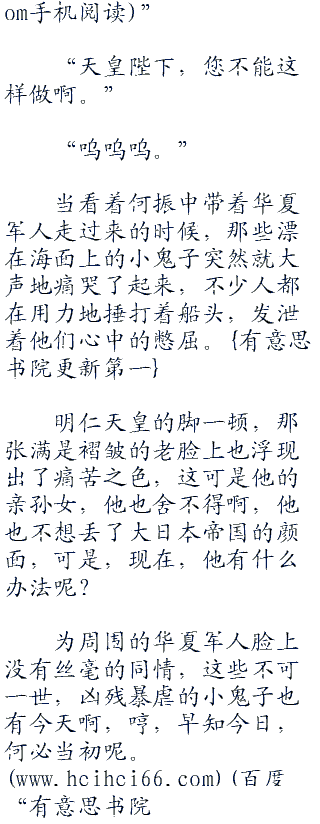 om手机阅读)”
“天皇陛下，您不能这
样做啊。”
“呜呜呜。”
当看着何振中带着华夏
军人走过来的时候，那些漂
在海面上的小鬼子突然就大
声地痛哭了起来，不少人都
在用力地捶打着船头，发泄
着他们心中的憋屈。{有意思
书院更新第一}
明仁天皇的脚一顿，那
张满是褶皱的老脸上也浮现
出了痛苦之色，这可是他的
亲孙女，他也舍不得啊，他
也不想丢了大日本帝国的颜
面，可是，现在，他有什么
办法呢？
为周围的华夏军人脸上
没有丝毫的同情，这些不可
一世，凶残暴虐的小鬼子也
有今天啊，哼，早知今日，
何必当初呢。
(www.hcihci66.com)(百度
“有意思书院